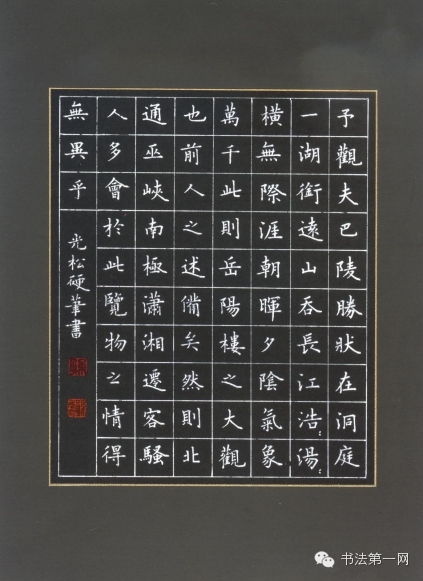 予觀夫巴陵勝狀在洞庭
一湖銜遠山吞長江浩〻湯〻
橫無際涯朝暉夕陰氣象
萬千此則岳陽樓之大觀
也前人之述備矣然則北
通巫峽南極瀟湘遷客騷
人多會於此覽物之情得
無異乎
光松硬筆書
书法第一网